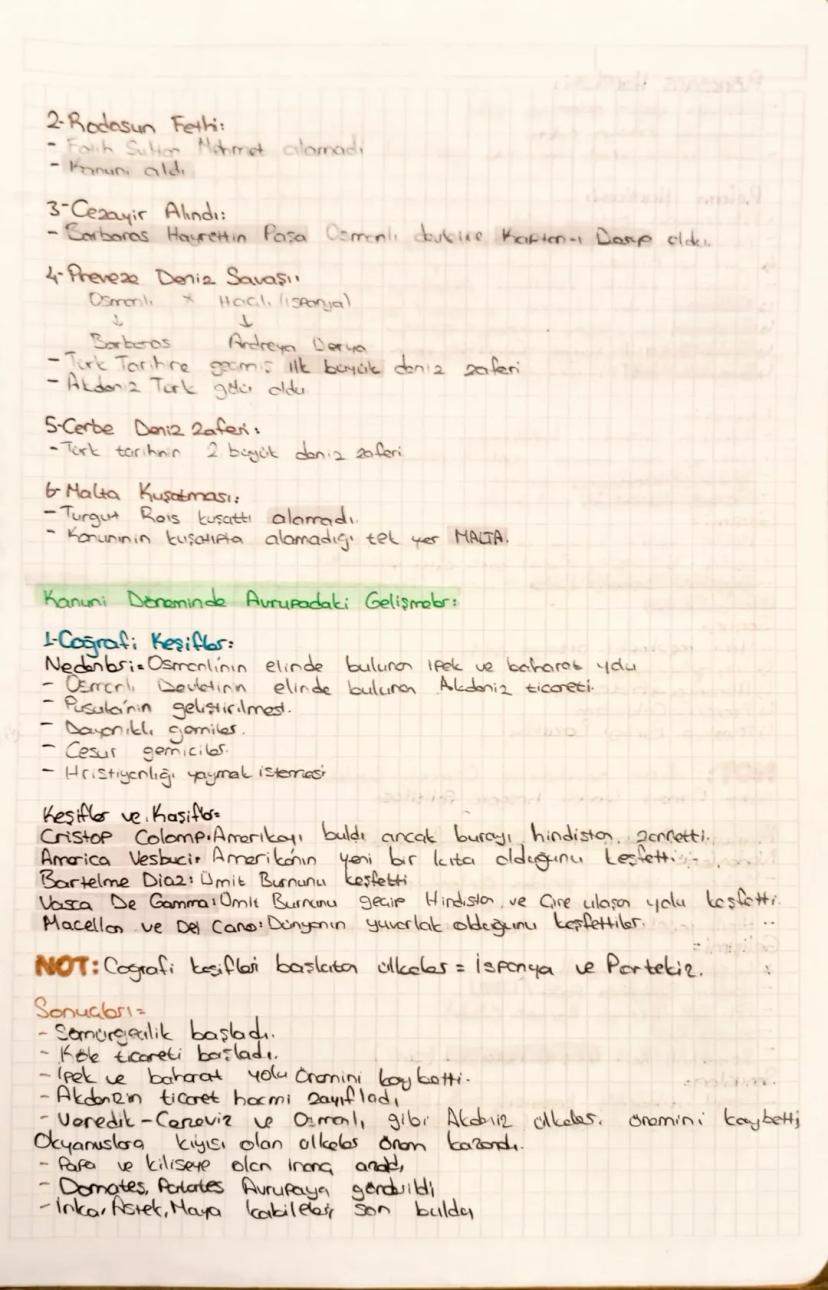 2-Rodosun Fethi:
- Fatih Sultan Mehmet alamadı
- Kanuni aldı
3-Cezayir Alındı:
- Barbaros Hayrettin Paşa Osmanlı devletine Kaptan-ı Derya oldu.
4-Preveze Deniz Savaşı:
Osmanlı x Haçlı (ispanya)
↓ ↓
Barbaros Andreya Dorya
- Türk Tarihine geçmiş ilk büyük deniz zaferi
- Akdeniz Türk gölü oldu
5-Cerbe Deniz Zaferi:
- Türk tarihnin 2. büyük deniz zaferi
6-Malta Kuşatması:
- Turgut Reis kuşattı alamadı.
- Kanuninin kuşatıpta alamadığı tek yer MALTA.
Kanuni Döneminde Avrupadaki Gelişmeler:
1-Coğrafi Keşifler:
Nedenleri= Osmanlı'nın elinde bulunan ipek ve baharat yolu
- Osmanlı Devletinin elinde bulunan Akdeniz ticareti.
- Pusula'nın geliştirilmesi.
- Dayanıklı gemiler.
- Cesur gemiciler.
- Hristiyanlığı yaymak istemesi
Keşifler ve Kaşifler=
Cristop Colomp: Amerikayı buldu ancak burayı hindistan zannetti.
America Vesbuci: Amerika'nın yeni bir kıta olduğunu keşfetti.
Bartelme Diaz: Ümit Burnunu keşfetti
Vasca De Gamma: Ümit Burnunu geçip Hindistan ve Çine ulaşan yolu keşfetti.
Macellan ve Del Cano: Dünyanın yuvarlak olduğunu keşfettiler.
NOT: Coğrafi keşifleri başlatan ülkeler = İspanya ve Portekiz.
Sonuçları=
- Sömürgecilik başladı.
- Köle ticareti başladı.
- İpek ve baharat yolu önemini kaybetti.
- Akdenizin ticaret hacmi zayıfladı
- Venedik-Ceneviz ve Osmanlı gibi Akdeniz ülkeleri önemini kaybetti
Okyanuslara kıyısı olan ülkeler önem kazandı.
- Papa ve kiliseye olan inanç azaldı
- Domates, Patates Avrupaya götürüldü
- İnka, Astek, Maya kabileleri son buldu